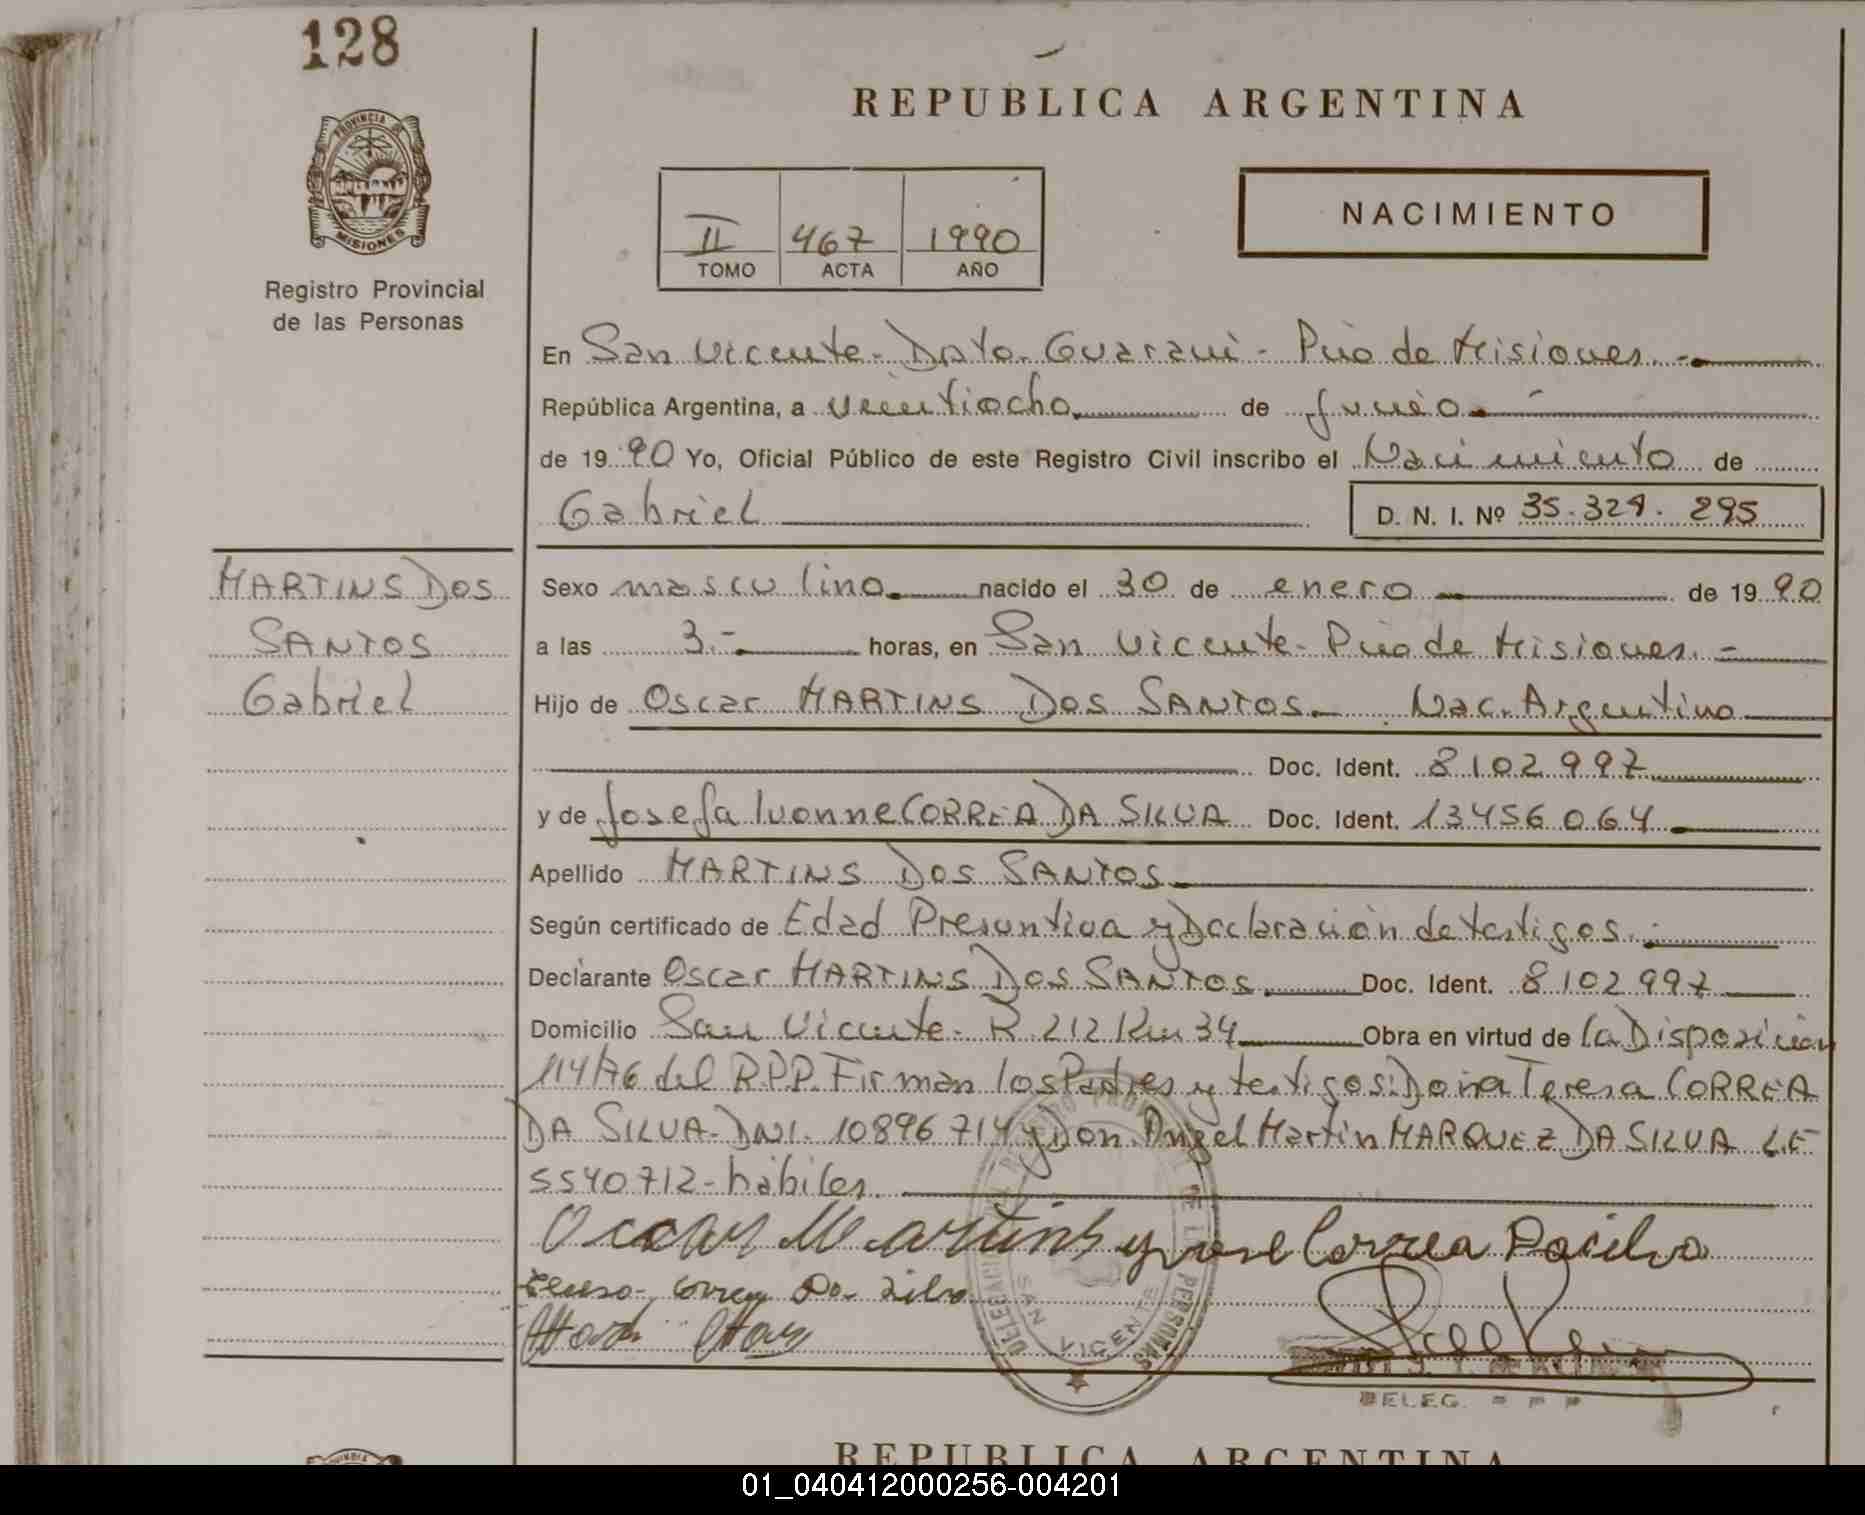 128
PROVINCIA
MISIONES
Registro Provincial
de las Personas
REPUBLICA ARGENTINA
II 467 1990
TOMO ACTA AÑO
NACIMIENTO
En San Vicente - Dpto. Guaraní - Pcia de Misiones.-
República Argentina, a veintiocho de junio.-
de 1990 Yo, Oficial Público de este Registro Civil inscribo el Nacimiento de
Gabriel
D. N. I. Nº 35.329.295
MARTINS DOS
SANTOS
Gabriel
Sexo masculino nacido el 30 de enero de 1990
a las 3.- horas, en San Vicente - Pcia de Misiones.-
Hijo de Oscar MARTINS DOS SANTOS. Nac. Argentino
Doc. Ident. 8102997
y de Josefa Ivonne CORREA DA SILVA Doc. Ident. 13456064
Apellido MARTINS DOS SANTOS
Según certificado de Edad Presuntiva y Declaración de testigos.-
Declarante Oscar MARTINS DOS SANTOS Doc. Ident. 8102997
Domicilio San Vicente - R. 212 Km 34 Obra en virtud de la Disposición
114/76 del R.P.P. Firman los Padres y testigos: Doña Teresa CORREA
DA SILVA - DNI. 10896714 y Don Angel Martin MARQUEZ DA SILVA LE
5540712 - hábiles.
Oscar Martins Correa Dacilva
Correa Da Silva
SAN VICENTE
DELEG.
REPUBLICA ARGENTINA
01_040412000256-004201